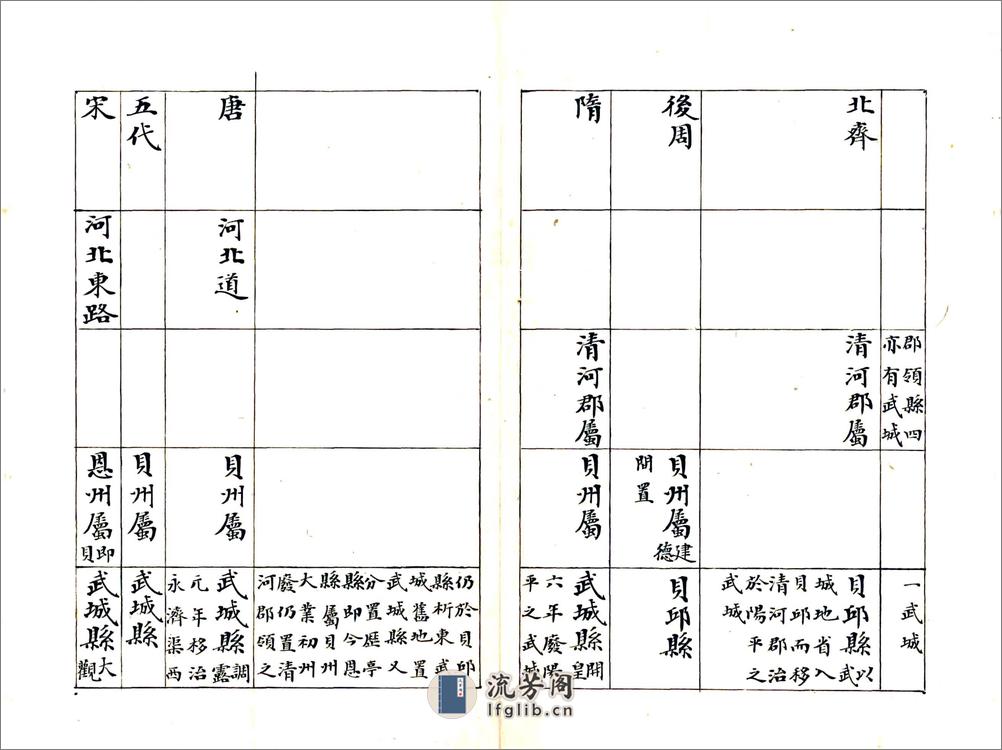 郡領縣四
亦有武城
一武城
北齊
清河郡屬
貝邱縣以武
城地省入
貝邱而移
清河郡治
於陽平之
武城
後周
貝州屬建德
間置
貝邱縣
隋
清河郡屬
貝州屬
武城縣開皇
六年廢陽
平之武城
仍於貝邱
縣析東武
城舊地置
武城縣又
分置歷亭
縣即今恩
縣屬貝州
大業初州
廢仍置清
河郡領之
唐
河北道
貝州屬
武城縣調露
元年移治
永濟渠西
五代
貝州屬
武城縣
宋
河北東路
恩州屬即貝
武城縣大觀
流芳阁
lfglib.cn